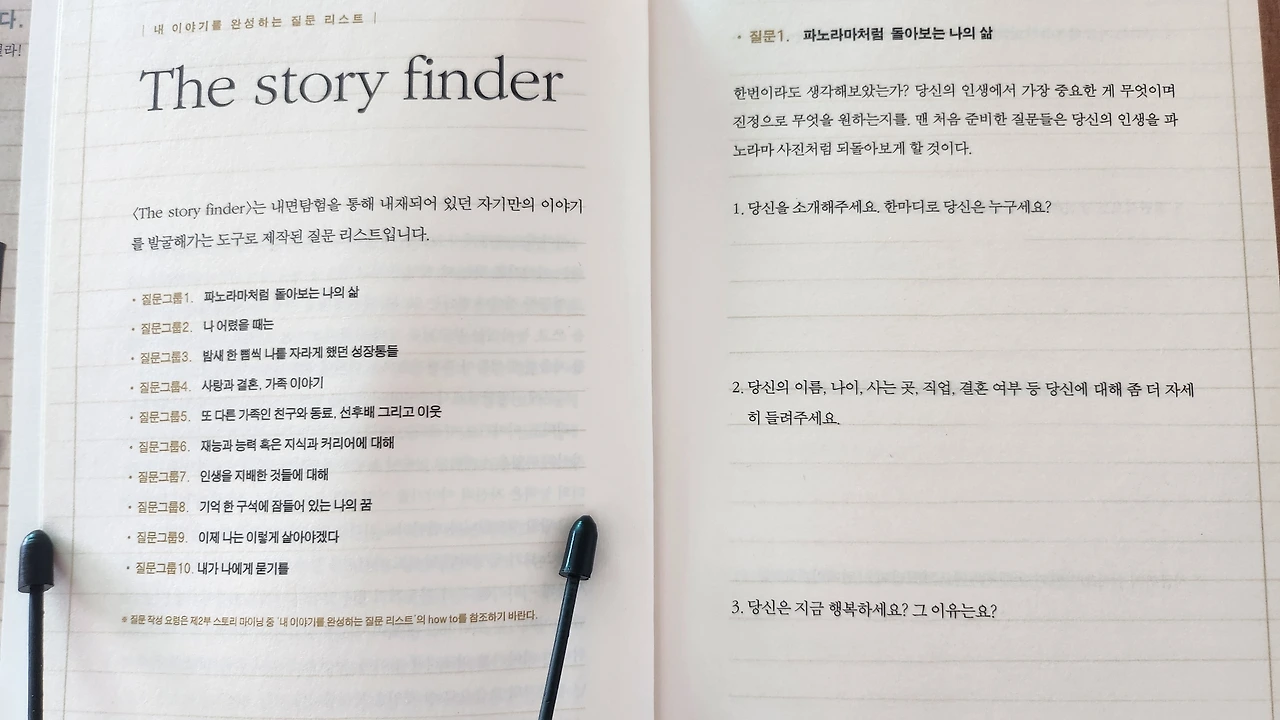 다.
| 내 이야기를 완성하는 질문 리스트 |
The story finder
〈The story finder〉는 내면탐험을 통해 내재되어 있던 자기만의 이야기
를 발굴해가는 도구로 제작된 질문 리스트입니다.
• 질문그룹1. 파노라마처럼 돌아보는 나의 삶
• 질문그룹2. 나 어렸을 때는
• 질문그룹3. 밤새 한 뼘씩 나를 자라게 했던 성장통들
• 질문그룹4. 사랑과 결혼, 가족 이야기
• 질문그룹5. 또 다른 가족인 친구와 동료, 선후배 그리고 이웃
• 질문그룹6. 재능과 능력 혹은 지식과 커리어에 대해
• 질문그룹7. 인생을 지배한 것들에 대해
• 질문그룹8. 기억 한 구석에 잠들어 있는 나의 꿈
• 질문그룹9. 이제 나는 이렇게 살아야겠다
• 질문그룹10. 내가 나에게 묻기를
※ 질문 작성 요령은 제2부 스토리 마이닝 중 '내 이야기를 완성하는 질문 리스트'의 how to를 참조하기 바란다.
• 질문1. 파노라마처럼 돌아보는 나의 삶
한번이라도 생각해보았는가? 당신의 인생에서 가장 중요한 게 무엇이며
진정으로 무엇을 원하는지를. 맨 처음 준비한 질문들은 당신의 인생을 파
노라마 사진처럼 되돌아보게 할 것이다.
1. 당신을 소개해주세요. 한마디로 당신은 누구세요?
2. 당신의 이름, 나이, 사는 곳, 직업, 결혼 여부 등 당신에 대해 좀 더 자세
히 들려주세요.
3. 당신은 지금 행복하세요? 그 이유는요?